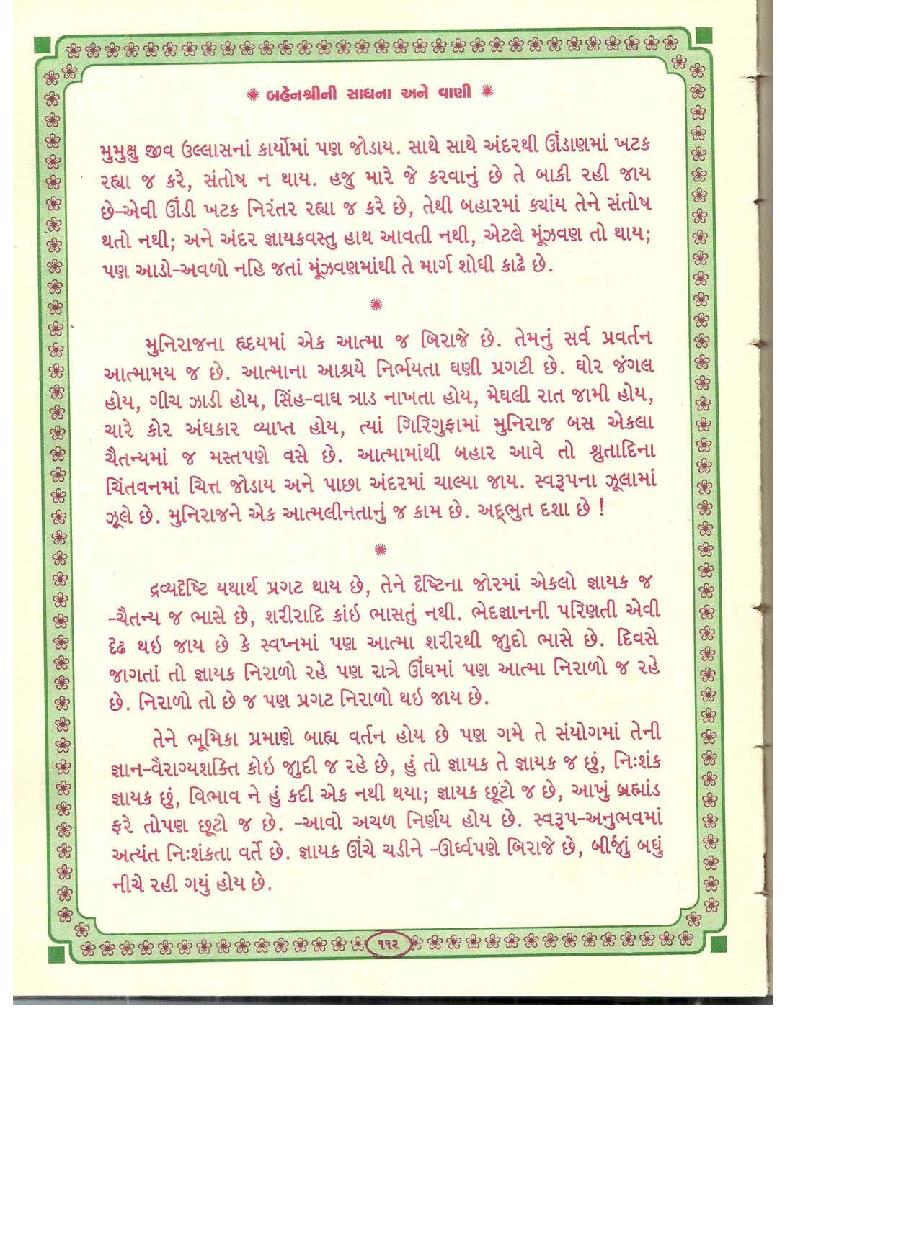 ✺ બહેનશ્રીની સાધના અને વાણી ✺
મુમુક્ષુ જીવ ઉલ્લાસનાં કાર્યોમાં પણ જોડાય. સાથે સાથે અંદરથી ઊંડાણમાં ખટક
રહ્યા જ કરે, સંતોષ ન થાય. હજુ મારે જે કરવાનું છે તે બાકી રહી જાય
છે-એવી ઊંડી ખટક નિરંતર રહ્યા જ કરે છે, તેથી બહારમાં ક્યાંય તેને સંતોષ
થતો નથી; અને અંદર જ્ઞાયકવસ્તુ હાથ આવતી નથી, એટલે મૂંઝવણ તો થાય;
પણ આડો-અવળો નહિ જતાં મૂંઝવણમાંથી તે માર્ગ શોધી કાઢે છે.
✺
મુનિરાજના હૃદયમાં એક આત્મા જ બિરાજે છે. તેમનું સર્વ પ્રવર્તન
આત્મામય જ છે. આત્માના આશ્રયે નિર્ભયતા ઘણી પ્રગટી છે. ઘોર જંગલ
હોય, ગીચ ઝાડી હોય, સિંહ-વાઘ ત્રાડ નાખતા હોય, મેઘલી રાત જામી હોય,
ચારે કોર અંધકાર વ્યાપ્ત હોય, ત્યાં ગિરિગુફામાં મુનિરાજ બસ એકલા
ચૈતન્યમાં જ મસ્તપણે વસે છે. આત્મામાંથી બહાર આવે તો શ્રુતાદિના
ચિંતવનમાં ચિત્ત જોડાય અને પાછા અંદરમાં ચાલ્યા જાય. સ્વરૂપના ઝૂલામાં
ઝૂલે છે. મુનિરાજને એક આત્મલીનતાનું જ કામ છે. અદ્ભુત દશા છે !
✺
દ્રવ્યદૃષ્ટિ યથાર્થ પ્રગટ થાય છે, તેને દૃષ્ટિના જોરમાં એકલો જ્ઞાયક જ
-ચૈતન્ય જ ભાસે છે, શરીરાદિ કાંઇ ભાસતું નથી. ભેદજ્ઞાનની પરિણતી એવી
દૃઢ થઇ જાય છે કે સ્વપ્નમાં પણ આત્મા શરીરથી જુદો ભાસે છે. દિવસે
જાગતાં તો જ્ઞાયક નિરાળો રહે પણ રાત્રે ઊંઘમાં પણ આત્મા નિરાળો જ રહે
છે. નિરાળો તો છે જ પણ પ્રગટ નિરાળો થઇ જાય છે.
તેને ભૂમિકા પ્રમાણે બાહ્ય વર્તન હોય છે પણ ગમે તે સંયોગમાં તેની
જ્ઞાન-વૈરાગ્યશક્તિ કોઇ જુદી જ રહે છે, હું તો જ્ઞાયક તે જ્ઞાયક જ છું, નિઃશંક
જ્ઞાયક છું, વિભાવ ને હું કદી એક નથી થયા; જ્ઞાયક છૂટો જ છે, આખું બ્રહ્માંડ
ફરે તોપણ છૂટો જ છે. -આવો અચળ નિર્ણય હોય છે. સ્વરૂપ-અનુભવમાં
અત્યંત નિઃશંકતા વર્તે છે. જ્ઞાયક ઊંચે ચડીને -ઊર્ધ્વપણે બિરાજે છે, બીજું બધું
નીચે રહી ગયું હોય છે.
૧૧૨